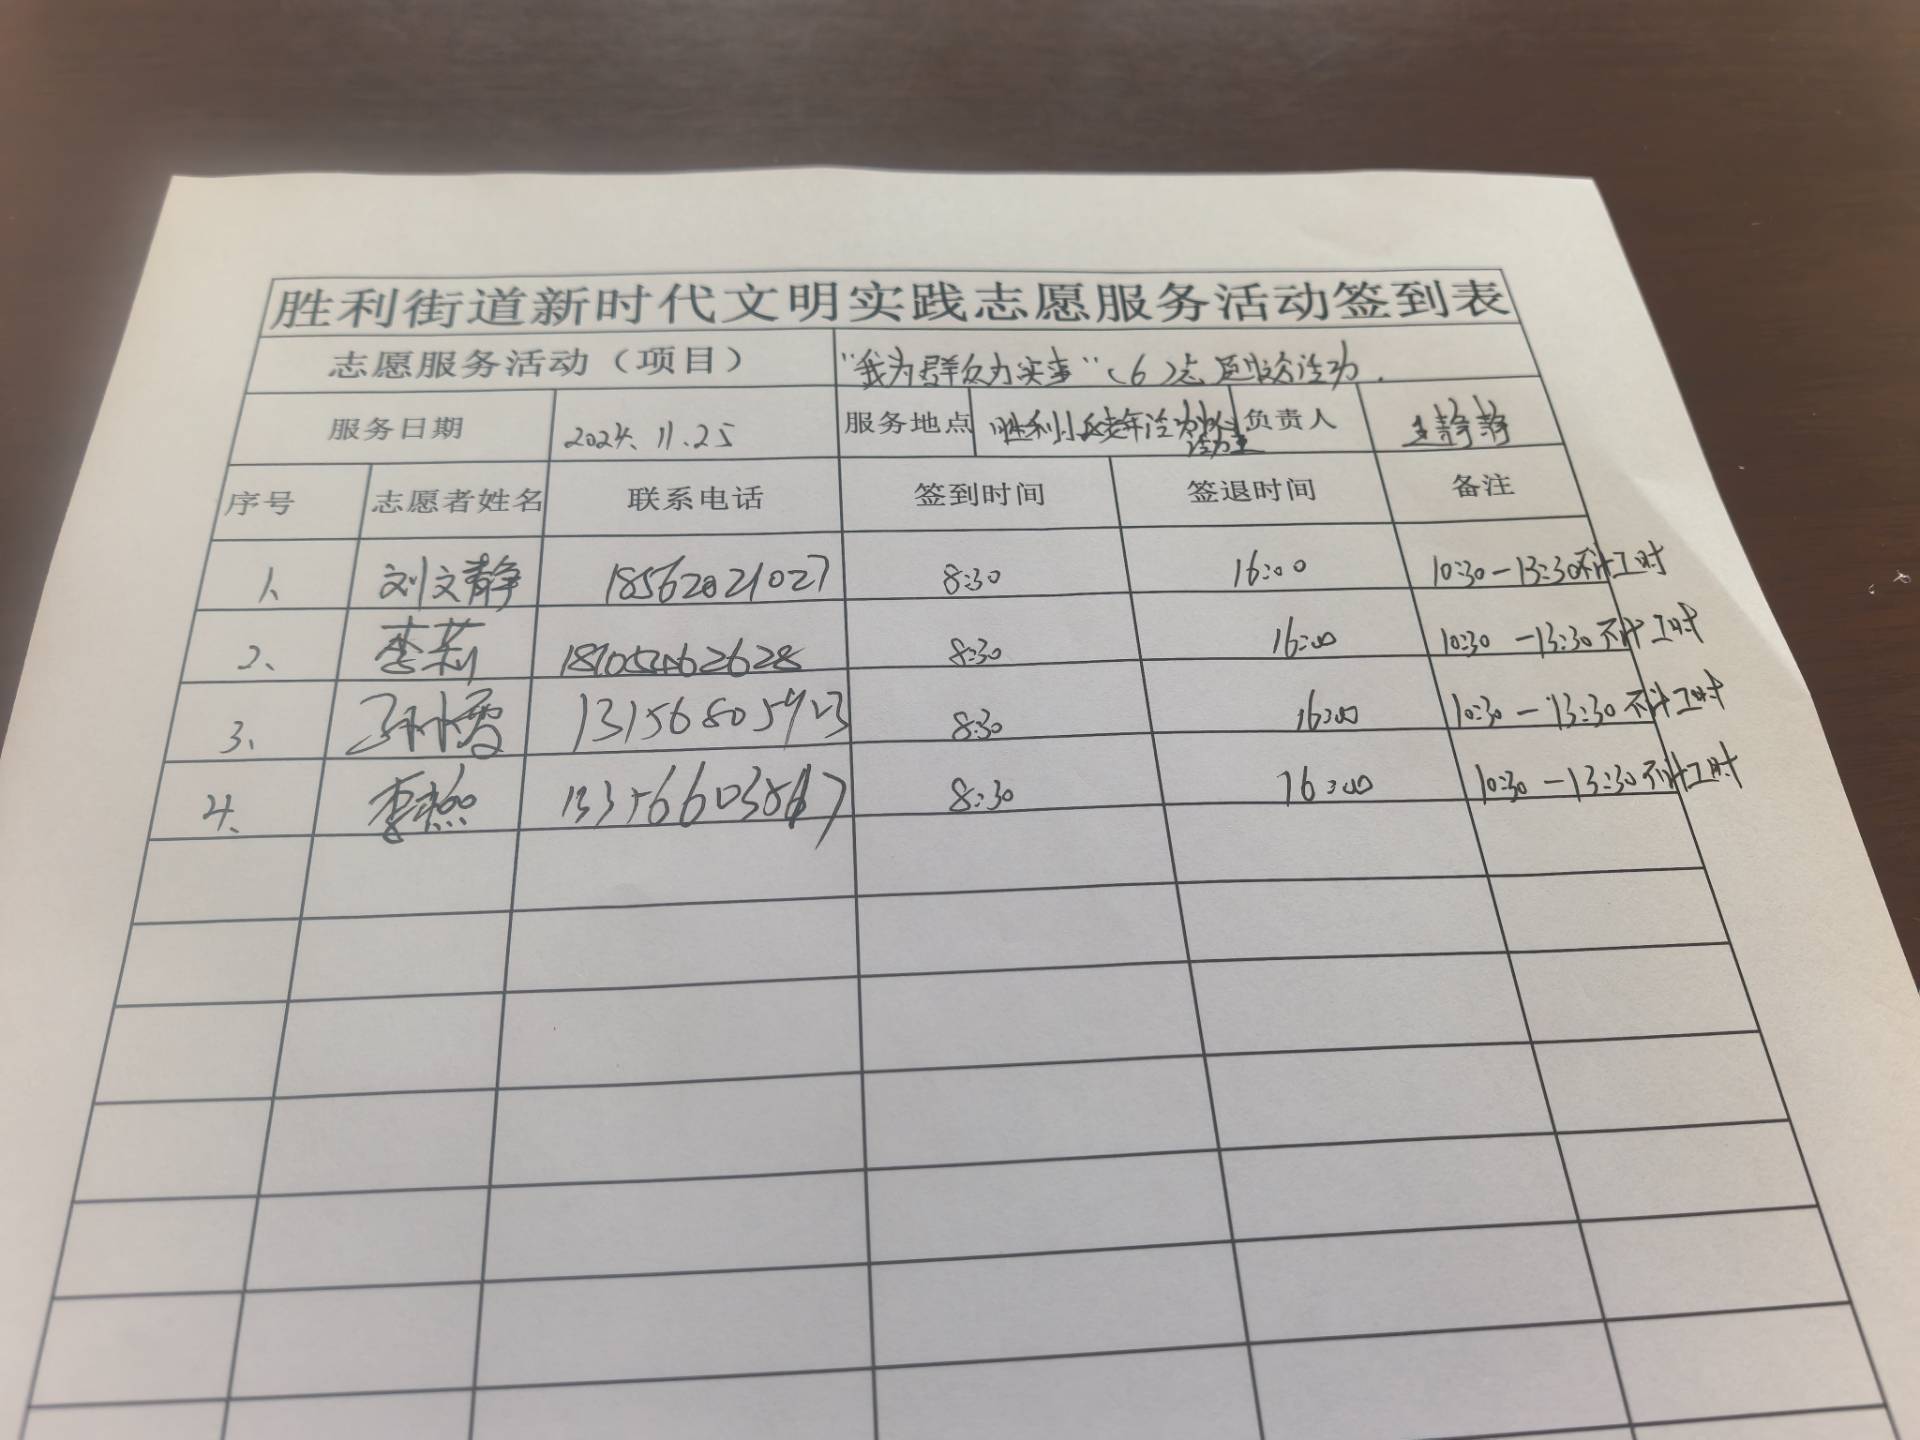 胜利街道新时代文明实践志愿服务活动签到表
志愿服务活动（项目） “我为群众办实事”（6）志愿服务活动.
服务日期 2024.11.25 服务地点 胜利小区老年活动 活动室 负责人 王静静
序号 志愿者姓名 联系电话 签到时间 签退时间 备注
1、 刘文静 18562021027 8:30 16:00 10:30-13:30不计工时
2、 李莉 8:30 16:00 10:30-13:30不计工时
3、 孙雪 13156805923 8:30 16:00 10:30-13:30不计工时
4、 李燕 8:30 16:00 10:30-13:30不计工时